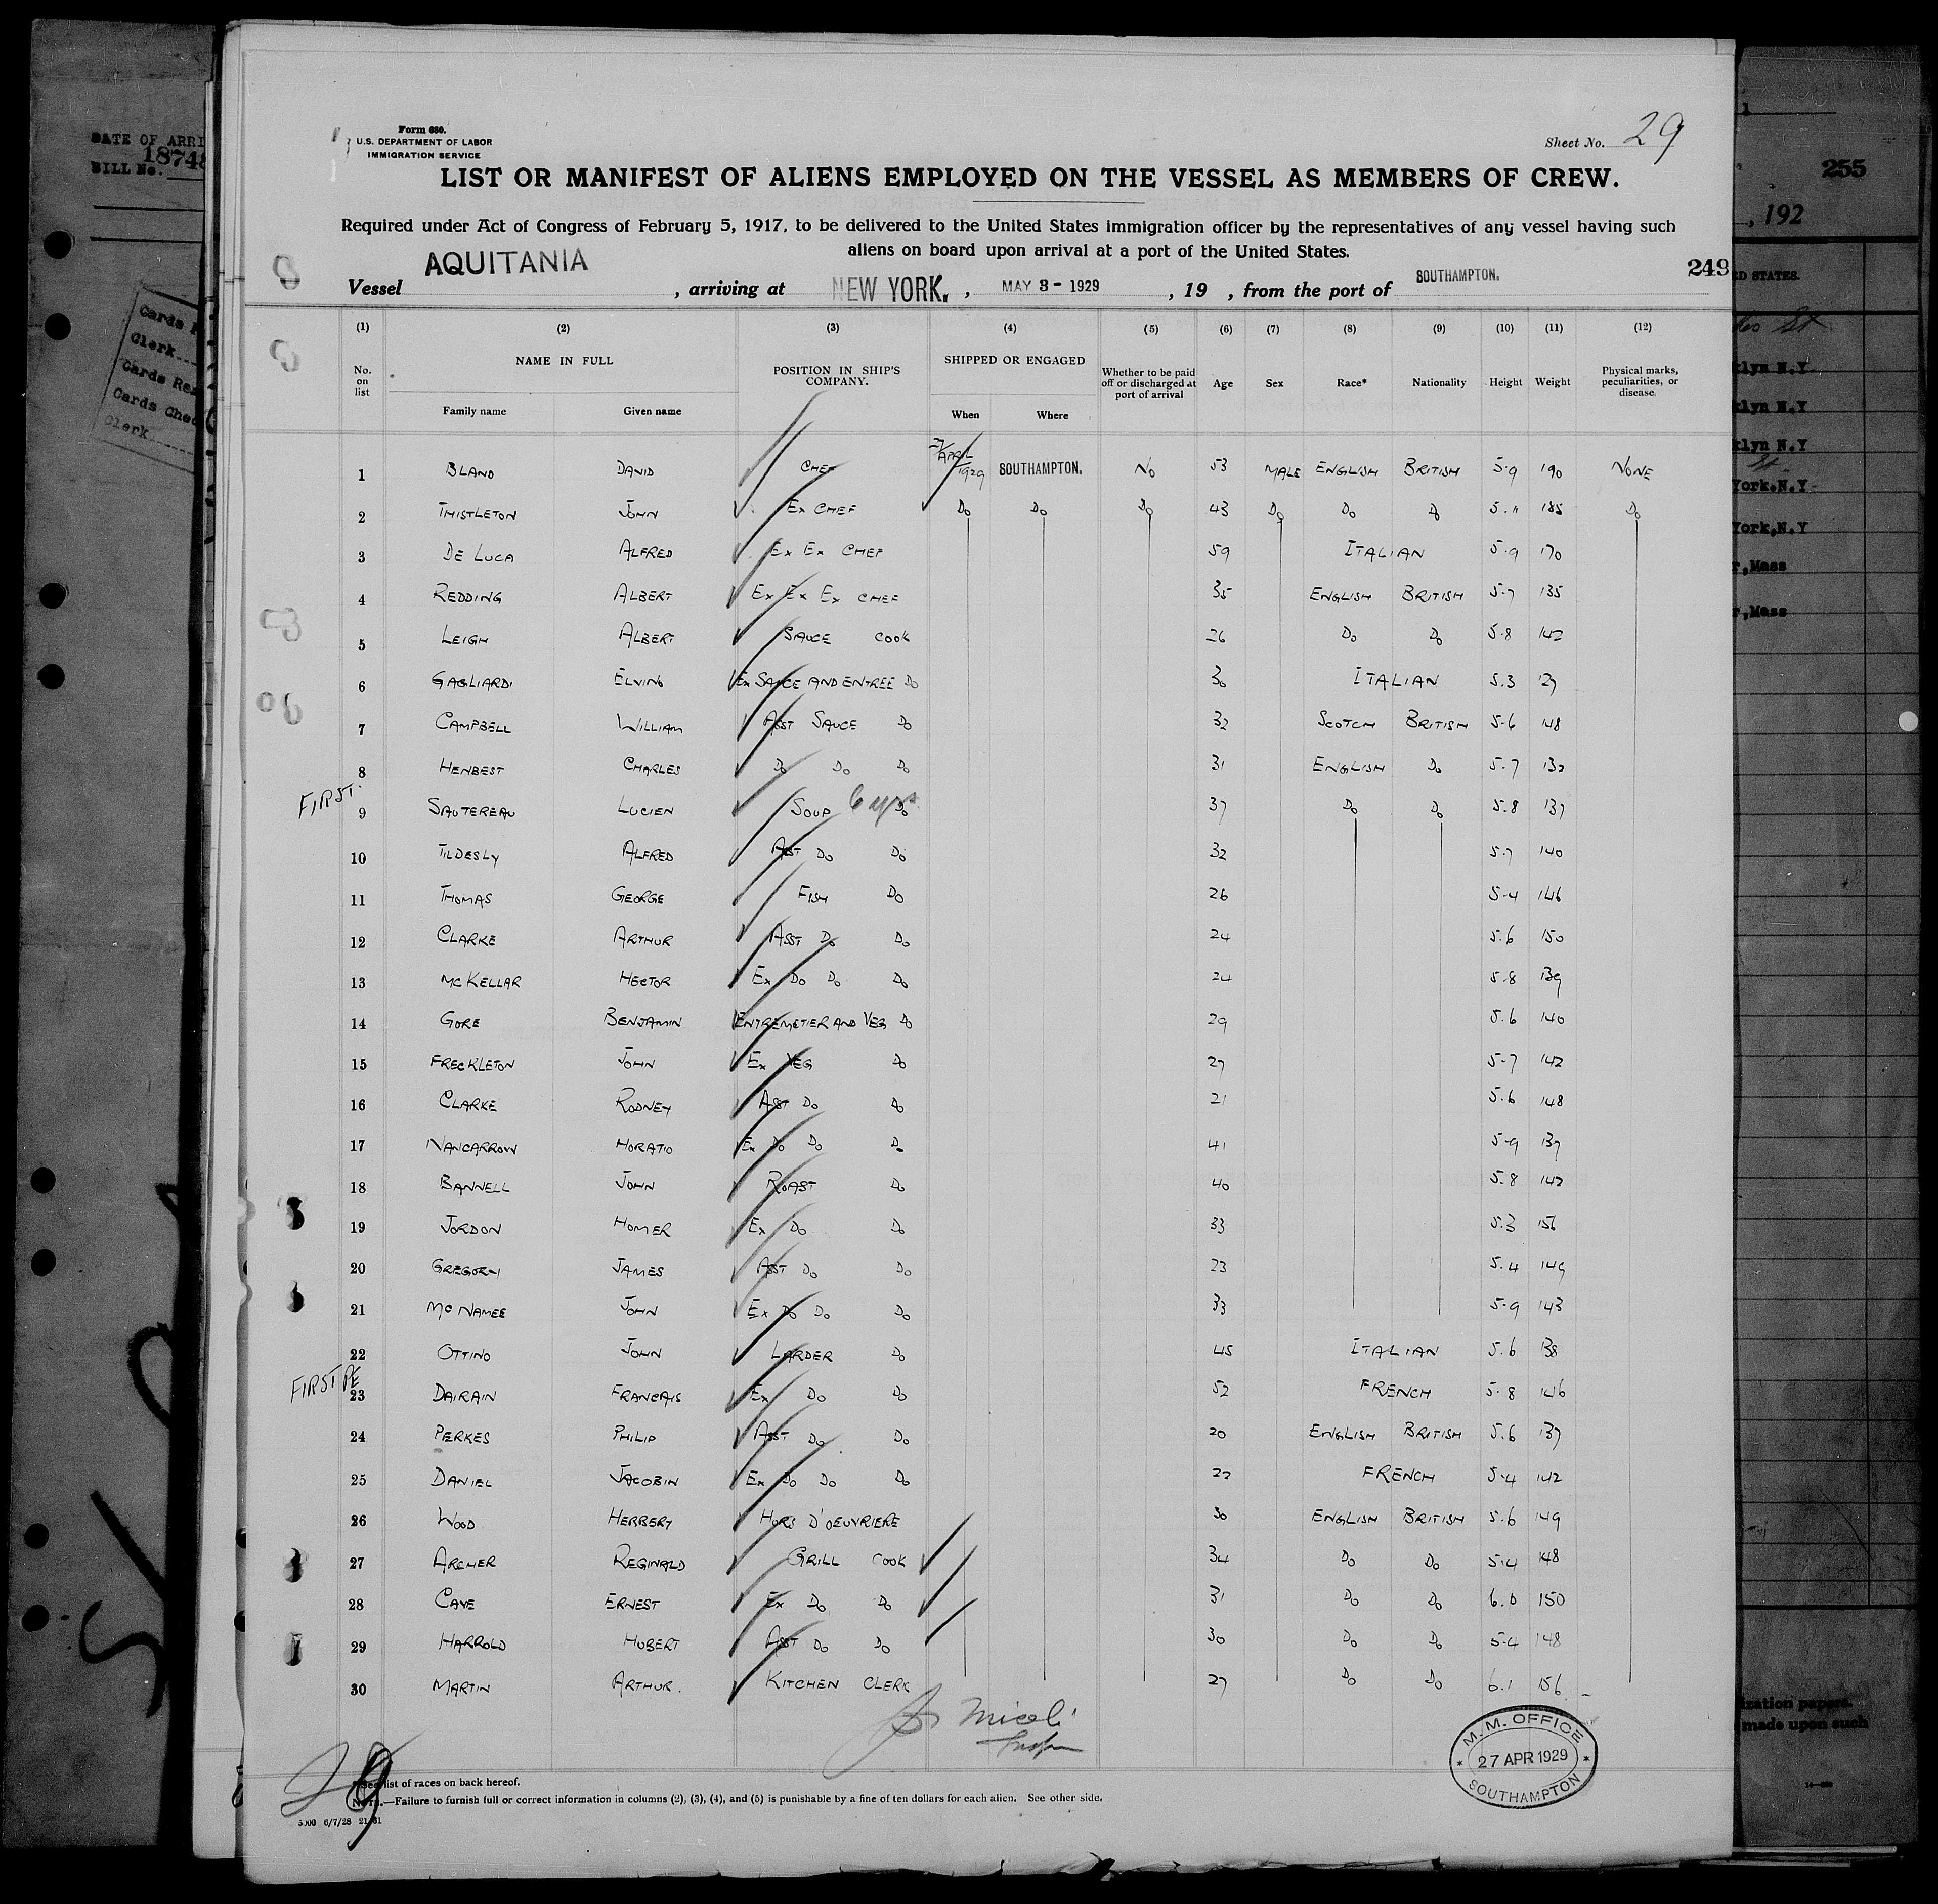 Form 680.
U.S. DEPARTMENT OF LABOR
IMMIGRATION SERVICE
Sheet No. 29
LIST OR MANIFEST OF ALIENS EMPLOYED ON THE VESSEL AS MEMBERS OF CREW.
Required under Act of Congress of February 5, 1917, to be delivered to the United States immigration officer by the representatives of any vessel having such
aliens on board upon arrival at a port of the United States.
249
Vessel AQUITANIA, arriving at NEW YORK., MAY 3 - 1929, 19 , from the port of SOUTHAMPTON.
(1) (2) (3) (4) (5) (6) (7) (8) (9) (10) (11) (12)
No. on list NAME IN FULL POSITION IN SHIP'S COMPANY. SHIPPED OR ENGAGED Whether to be paid off or discharged at port of arrival Age Sex Race* Nationality Height Weight Physical marks, peculiarities, or disease.
Family name Given name When Where
1 BLAND DAVID CHEF 27/APRIL/1929 SOUTHAMPTON. No 53 MALE ENGLISH BRITISH 5.9 190 NONE
2 THISTLETON JOHN Ex CHEF Do Do Do 43 Do Do Do 5.11 185 Do
3 DE LUCA ALFRED Ex Ex CHEF 59 ITALIAN 5.9 170
4 REDDING ALBERT Ex Ex Ex CHEF 35 ENGLISH BRITISH 5.7 135
5 LEIGH ALBERT SAUCE COOK 26 Do Do 5.8 142
6 GAGLIARDI ELVINO Ex SAUCE AND ENTREE Do 30 ITALIAN 5.3 127
7 CAMPBELL WILLIAM ASST SAUCE Do 32 SCOTCH BRITISH 5.6 148
8 HENBEST CHARLES Do Do Do 31 ENGLISH Do 5.7 132
FIRST.
9 SAUTEREAU LUCIEN SOUP Do 37 Do Do 5.8 137
10 TILDESLY ALFRED ASST Do Do 32 5.7 140
11 THOMAS GEORGE FISH Do 26 5.4 146
12 CLARKE ARTHUR ASST Do Do 24 5.6 150
13 McKELLAR HECTOR Ex Do Do Do 24 5.8 139
14 GORE BENJAMIN ENTREMETIER AND VEG Do 29 5.6 140
15 FRECKLETON JOHN Ex VEG Do 27 5.7 142
16 CLARKE RODNEY ASST Do Do 21 5.6 148
17 NANCARROW HORATIO Ex Do Do Do 41 5.9 137
18 BANNELL JOHN ROAST Do 40 5.8 142
19 JORDON HOMER Ex Do Do 33 5.3 156
20 GREGORY JAMES ASST Do Do 23 5.4 149
21 McNAMEE JOHN Ex Do Do Do 33 5.9 143
22 OTTINO JOHN LARDER Do 45 ITALIAN 5.6 138
FIRST
23 DAIRAIN FRANCAIS Ex Do Do 52 FRENCH 5.8 146
24 PERKES PHILIP ASST Do Do 20 ENGLISH BRITISH 5.6 137
25 DANIEL JACOBIN Ex Do Do Do 22 FRENCH 5.4 142
26 WOOD HERBERT HORS D'OEUVRIERE 30 ENGLISH BRITISH 5.6 149
27 ARCHER REGINALD GRILL COOK 34 Do Do 5.4 148
28 CAVE ERNEST Ex Do Do 31 Do Do 6.0 150
29 HARROLD HUBERT ASST Do Do 30 Do Do 5.4 148
30 MARTIN ARTHUR. KITCHEN CLERK 27 Do Do 6.1 156
M. M. OFFICE
27 APR 1929
SOUTHAMPTON
29
* See list of races on back hereof.
NOTE.—Failure to furnish full or correct information in columns (2), (3), (4), and (5) is punishable by a fine of ten dollars for each alien. See other side.
DATE OF ARRI
BILL No. 18748
Cards
Clerk
Cards
Cards
Clerk
255
, 192
D STATES.
klyn N.Y
klyn N.Y
klyn N.Y
York.N.Y
York,N.Y
,Mass
,Mass
ization papers.
made upon such